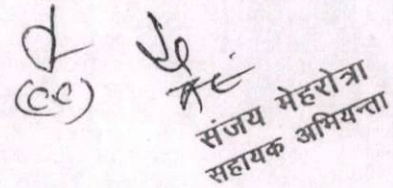 (CC)
AE
संजय मेहरोत्रा
सहायक अभियन्ता